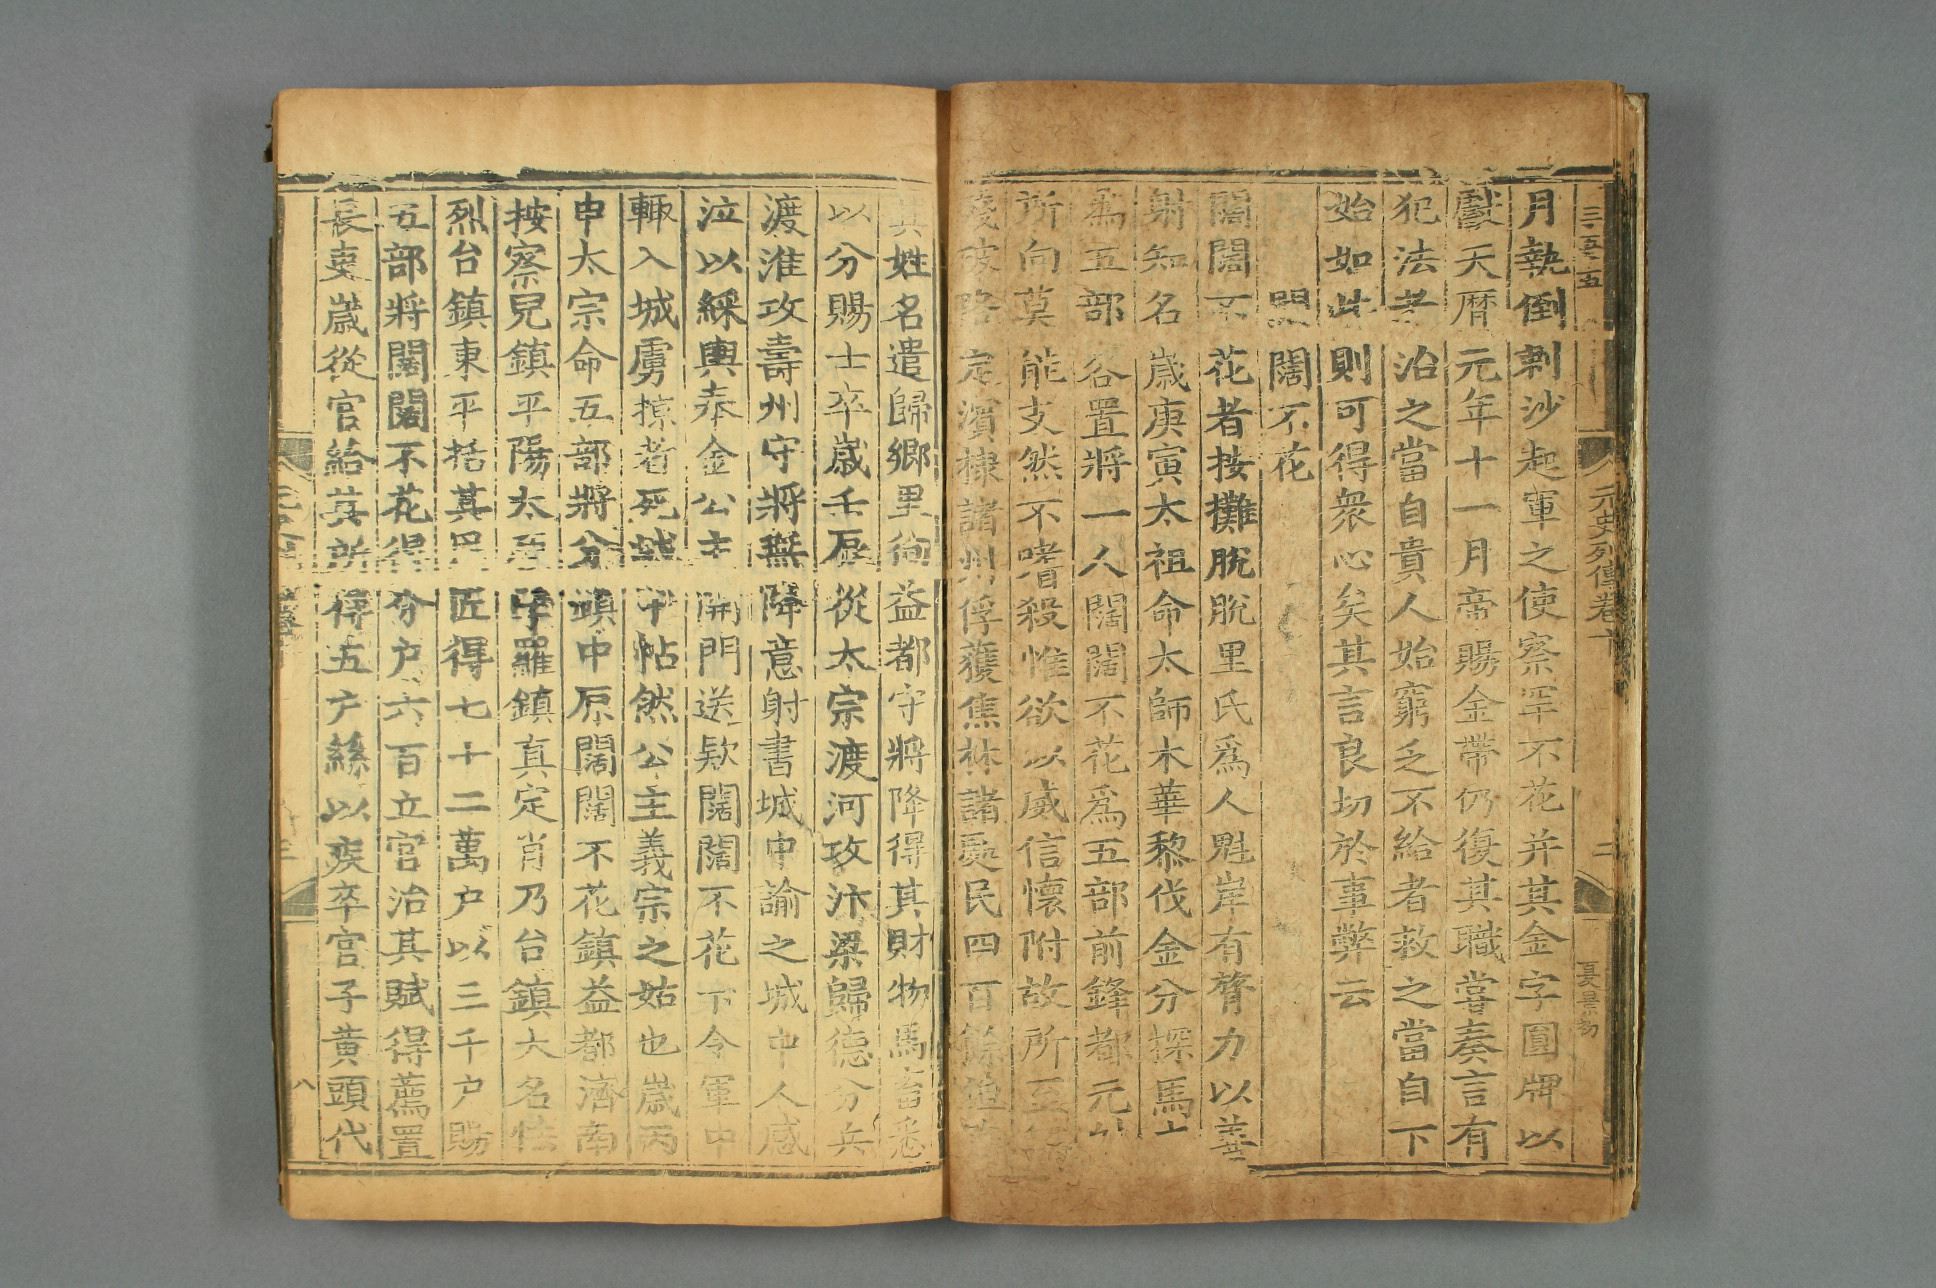 元史列傳卷十
二
月執倒剌沙起軍之使察罕不花并其金字圓牌以
獻天曆元年十一月帝賜金帶仍復其職嘗奏言有
犯法者治之當自貴人始窮乏不給者救之當自下
始如此則可得衆心矣其言良切於事弊云
闊闊不花
闊闊不花者按攤脫脫里氏爲人魁岸有膂力以善
射知名歲庚寅太祖命太師木華黎伐金分探馬
爲五部各置將一人闊闊不花爲五部前鋒都元
所向莫能支然不嗜殺惟欲以威信懷附故所至
殘破略定濱棣諸州俘獲焦林諸處民四百餘
其姓名遣歸鄉里徇益都守將降得其財物馬畜悉
以分賜士卒歲壬辰從太宗渡河攻汴梁歸德分兵
渡淮攻壽州守將無降意射書城中諭之城中人感
泣以綵輿奉金公主開門送款闊闊不花下令軍中
輒入城虜掠者死城中帖然公主義宗之姑也歲丙
申太宗命五部將分鎮中原闊闊不花鎮益都濟南
按察兒鎮平陽太原孛羅鎮真定肖乃台鎮大名怯
烈台鎮東平括其民匠得七十二萬戶以三千戶賜
五部將闊闊不花得分戶六百立官治其賦得薦置
長吏歲從官給其所得五戶絲以疾卒官子黃頭代